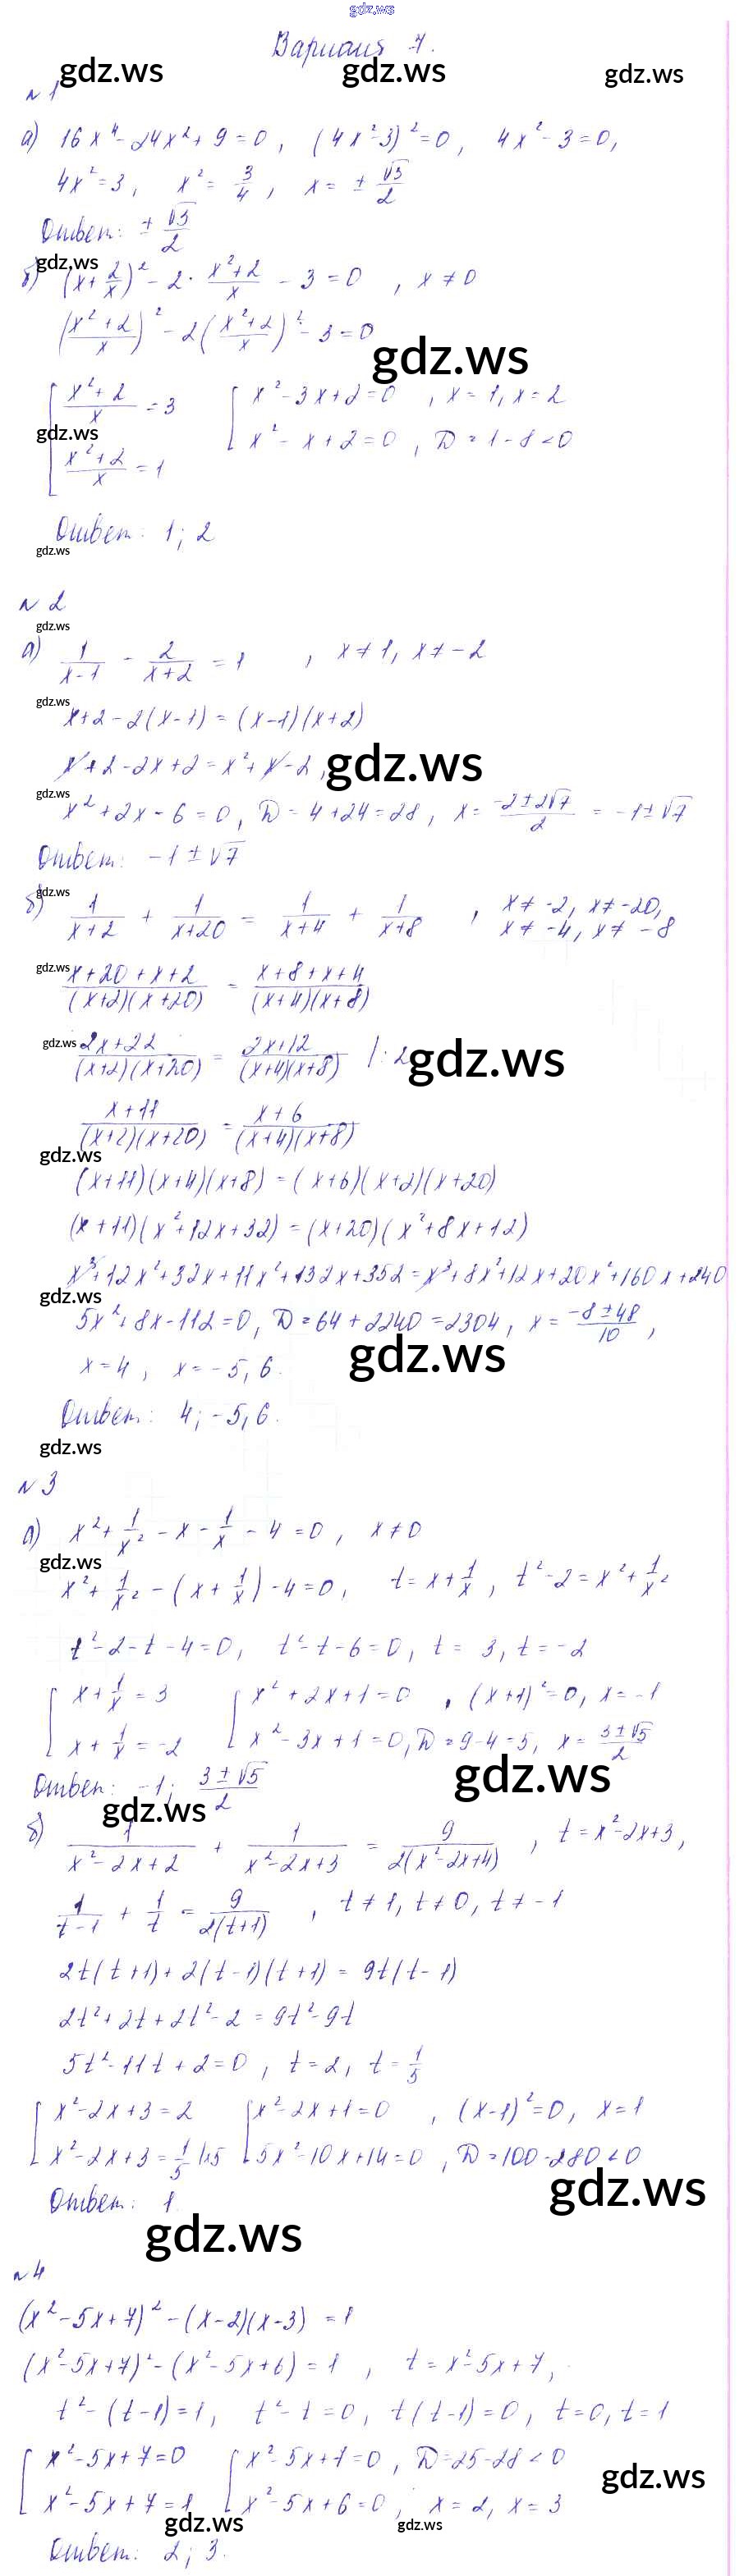 gdz.ws
Вариант 7.
gdz.ws gdz.ws gdz.ws
№ 1
а) 16x⁴ - 24x² + 9 = 0, (4x² - 3)² = 0, 4x² - 3 = 0,
4x² = 3, x² = 3/4, x = ± √3/2
Ответ: ± √3/2
gdz.ws
б) (x + 2/x)² - 2 · (x² + 2)/x - 3 = 0, x ≠ 0
((x² + 2)/x)² - 2((x² + 2)/x)² - 3 = 0
gdz.ws
[ (x² + 2)/x = 3 [ x² - 3x + 2 = 0, x = 1, x = 2
gdz.ws
(x² + 2)/x = 1 x² - x + 2 = 0, D = 1 - 8 < 0
Ответ: 1; 2
gdz.ws
№ 2
gdz.ws
а) 1/(x-1) - 2/(x+2) = 1, x ≠ 1, x ≠ -2
gdz.ws
x + 2 - 2(x - 1) = (x - 1)(x + 2)
x + 2 - 2x + 2 = x² + x - 2,
gdz.ws
gdz.ws
x² + 2x - 6 = 0, D = 4 + 24 = 28, x = (-2 ± 2√7)/2 = -1 ± √7
Ответ: -1 ± √7
gdz.ws
б) 1/(x+2) + 1/(x+20) = 1/(x+4) + 1/(x+8), x ≠ -2, x ≠ -20,
x ≠ -4, x ≠ -8
gdz.ws
(x + 20 + x + 2)/((x+2)(x+20)) = (x + 8 + x + 4)/((x+4)(x+8))
gdz.ws
(2x + 22)/((x+2)(x+20)) = (2x + 12)/((x+4)(x+8)) | : 2
gdz.ws
(x + 11)/((x+2)(x+20)) = (x + 6)/((x+4)(x+8))
gdz.ws
(x + 11)(x + 4)(x + 8) = (x + 6)(x + 2)(x + 20)
(x + 11)(x² + 12x + 32) = (x + 20)(x² + 8x + 12)
x³ + 12x² + 32x + 11x² + 132x + 352 = x³ + 8x² + 12x + 20x² + 160x + 240
gdz.ws
5x² + 8x - 112 = 0, D = 64 + 2240 = 2304, x = (-8 ± 48)/10,
gdz.ws
x = 4, x = -5,6.
Ответ: 4; -5,6.
gdz.ws
№ 3
а) x² + 1/x² - x - 1/x - 4 = 0, x ≠ 0
gdz.ws
x² + 1/x² - (x + 1/x) - 4 = 0, t = x + 1/x, t² - 2 = x² + 1/x²
t² - 2 - t - 4 = 0, t² - t - 6 = 0, t = 3, t = -2
[ x + 1/x = 3 [ x² + 2x + 1 = 0, (x+1)² = 0, x = -1
x + 1/x = -2 x² - 3x + 1 = 0, D = 9 - 4 = 5, x = (3 ± √5)/2
gdz.ws
Ответ: -1; (3 ± √5)/2
gdz.ws
б) 1/(x² - 2x + 2) + 1/(x² - 2x + 3) = 9/(2(x² - 2x + 4)), t = x² - 2x + 3,
1/(t-1) + 1/t = 9/(2(t+1)), t ≠ 1, t ≠ 0, t ≠ -1
2t(t + 1) + 2(t - 1)(t + 1) = 9t(t - 1)
2t² + 2t + 2t² - 2 = 9t² - 9t
5t² - 11t + 2 = 0, t = 2, t = 1/5
[ x² - 2x + 3 = 2 [ x² - 2x + 1 = 0, (x - 1)² = 0, x = 1
x² - 2x + 3 = 1/5 |·5 5x² - 10x + 14 = 0, D = 100 - 280 < 0
gdz.ws
Ответ: 1.
gdz.ws
№ 4
(x² - 5x + 7)² - (x - 2)(x - 3) = 1
(x² - 5x + 7)² - (x² - 5x + 6) = 1, t = x² - 5x + 7,
t² - (t - 1) = 1, t² - t = 0, t(t - 1) = 0, t = 0, t = 1
[ x² - 5x + 7 = 0 [ x² - 5x + 7 = 0, D = 25 - 28 < 0
gdz.ws
x² - 5x + 7 = 1 x² - 5x + 6 = 0, x = 2, x = 3
gdz.ws gdz.ws
Ответ: 2; 3.